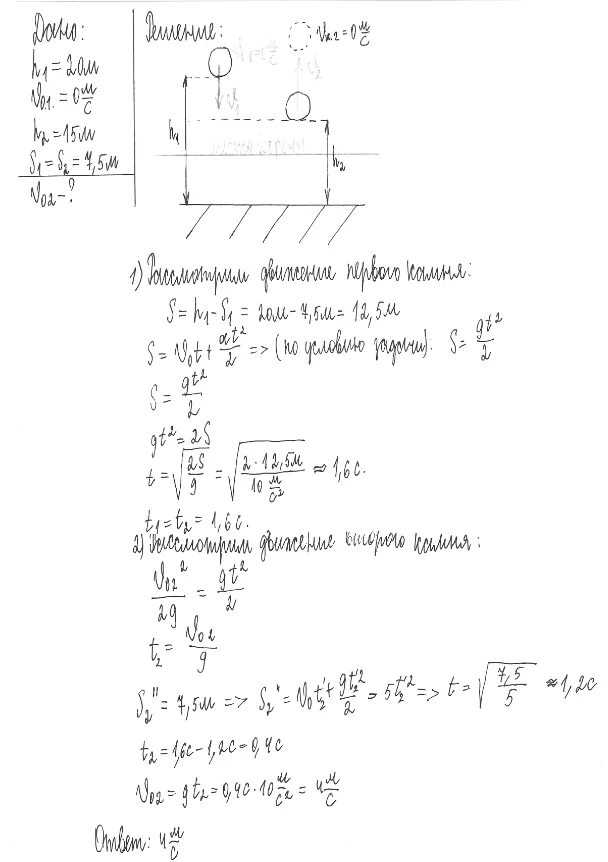 Дано:
h₁ = 20м
V₀₁. = 0 м/с
h₂ = 15м
S₁ = S₂ = 7,5м
V₀₂ - ?
Решение:
Vк.2 = 0 м/с
h₁
h₂
1) Рассмотрим движение первого камня:
S = h₁ - S₁ = 20м - 7,5м = 12,5м
S = V₀t + at²/2 => (по условию задачи): S = gt²/2
S = gt²/2
gt² = 2S
t = √(2S/g) = √(2·12,5м/10 м/с²) ≈ 1,6с.
t₁ = t₂ = 1,6с.
2) Рассмотрим движение второго камня:
V₀₂²/2g = gt²/2
t₂ = V₀₂/g
S₂'' = 7,5м => S₂' = V₀t₂' + gt₂'²/2 = 5t₂'² => t = √(7,5/5) ≈ 1,2с
t₂ = 1,6с - 1,2с = 0,4с
V₀₂ = gt₂ = 0,4с · 10 м/с² = 4 м/с
Ответ: 4 м/с